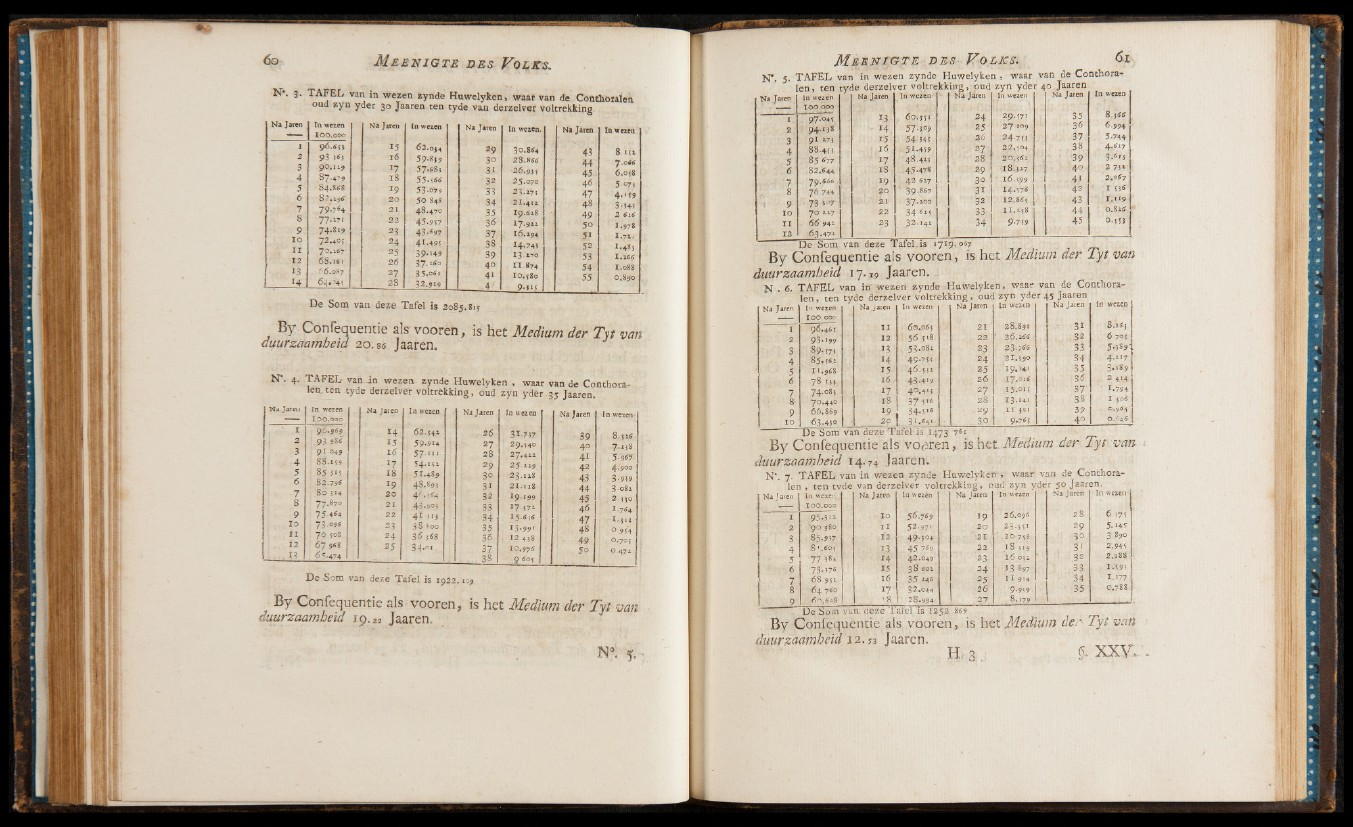 60 MEENIGTE DES VOLKS.
N°. 3. TAFEL van in wezen zynde Huwelyken, waar van de Conthoralen
oud zyn yder 30 Jaaren ten tyde van derzelver voltrekking
Na Jaren In wezen Na Jaren In wezen Na Jaren In wezen. Na Jaren In wezen
100.000
1 96.653 15 62.054 29 30.864 43 8.152
2 93.363 16 59.859 30 28.866 44 7.066
3 90.129 17 57.685 31 26.935 45 6.038
4 87.479 18 55.366 32 25.070 46 5.075
5 84.868 19 53.075 33 23.275 47
6 82.296 20 50.848 34 21.412 48
7 79.764 21 48.470 35 19.628 49 2.616
8 77.271 22 45.957 36 17.922 50 1.978
9 74.819 23 43.697 37 16.294 51
10 72.405 24 41.495 38 14.745 52 1.485
11 70.267 25 39.149 39 13.270 53 1.266
12 68.161 26 37.260 40 11.874 54 1.088
13 66.087 27 35.061 41 10.580 55 0.890
14 28 32.919 9.315
De Som van deze Tafel is 2085.815
By Confequentie als vooren, is het Medium der Tyt van
duurzaamheid 20.86 Jaaren.
N°. 4. TAFEL van in wezen zynde Huwelyken, waar van de Conthora-
len ten tyde derzelver voltrekking, oud zyn yder 35 Jaaren.
Na Jaren In wezen Na Jaren In wezen Na Jaren In wezen Na Jaren In wezen
100.000
1 96.969 14 62.542 26 31.737 39 8.526
2 93.986 15 59.914 27 29.540 40 7.138
3 91.049 16 28 27.422 41 5.967
4 88.159 17 54.152 29 25.129 42 4.900
5 85.515 18 51.489 30 23.128 43 3.919
6 82.796 19 48.893 31 21.128 44 3.081
7 80.314 20 32 19.199 45
8 77.870 21 43.903 33 17.372 46 1.764
9 75.462 22 34 15.636 47
10 73.096 23 38.800 35 13.991 48 0.954
11 70.508 24 36.368 36 12.438 49 0.705
12 67.968 25 37 10.976 50 0.472
13 65.474 38 9.605
De Som van deze Tafel is 1922.109
By Confequentie als vooren, is het Medium der Tyt van
duurzaamheid 19.22 Jaaren.
N°. 5.
MEENIGTE DES VOLKS. 61
N°. 5. TAFEL van in wezen zynde Huwelyken, waar van de Conthora-
len, ten tyde derzelver voltrekking, oud zyn yder 40 Jaaren
Na Jaren In wezen Na Jaren In wezen Na Jaren In wezen Na Jaren In wezen
100.000
1 97.045 13 60.351 24 29.571 35 8.366
2 94.138 14 57.309 25 27.109 36 6.994
3 91.273 15 54.345 26 24.755 37 5.744
4 88.453 16 51.459 27 22.504 38 4.617
5 85.677 17 48.425 28 20.362 39 3.615
6 82.644 18 45.478 29 18.327 40 2.732
7 79.666 19 42.627 30 16.399 41 2.067
8 76.744 20 39.867 31 14.576 42 1.536
9 21 37.202 32 12.865 43 1.119
10 70.217 22 34.615 33 11.258 44 0.826
11 66.942 23 32.142 34 9.759 45 0.553
12 63.472
De Som van deze Tafel is 1719.067
By Confequentie als vooren, is het Medium der Tyt van
duurzaamheid 17.19 Jaaren.
N. 6. TAFEL van in wezen zynde Huwelyken, waar van de Conthora-
len, ten tyde derzelver voltrekking, oud zyn yder 45 Jaaren
Na Jaren In wezen Na Jaren In wezen Na Jaren In wezen Na Jaren In wezen
100.000
1 96.461 11 60.065 21 28.891 31 8.165
2 93.199 12 56.518 22 26.266 32 6.705
3 89.575 13 53.081 23 23.766 33
4 85.562 14 49.751 24 21.390 34 4.217
5 15 46.532 25 19.141 35 3.189
6 16 43.419 26 17.016 36 2.414
7 74.081 17 40.415 27 15.011 37 1.794
8 70.440 18 37.516 28 13.141 38 1.306
9 66.889 19 34.516 29 39 0.905
10 63.430 20 30 9.765 40 0.626
De Som van deze Tafel is 1473.761
By Confequentie als vooren, is het Medium der Tyt van
duurzaamheid 14.74 Jaaren.
N°. 7. TAFEL van in wezen zynde Huwelyken, waar van de Conthora-
len, ten tyde van derzelver voltrekking, oud zyn yder 50 Jaaren.
Na Jaren In wezen Na Jaren In wezen Na Jaren In wezen Na Jaren In wezen
100.000
1 95.312 10 56.769 19 26.096 28 6.175
2 90.580 11 52.971 20 23.351 29 5.145
3 85.957 12 49.304 21 20.758 30 3.890
4 81.601 13 45.769 22 18.319 31 2.945
5 77.382 14 42.049 23 16.032 32 2.288
6 73.176 15 38.602 24 13.897 33
7 68.951 16 35.246 25 11.914 34 1.177
8 64.760 17 32.044 26 9.959 35 0.788
9 60.608 18 28.994 27 8.179
De Som van deze Tafel is 1252.869
By Confequentie als vooren, is het Medium der Tyt van
duurzaamheid 12.53 Jaaren.
H 3 §. XXV.